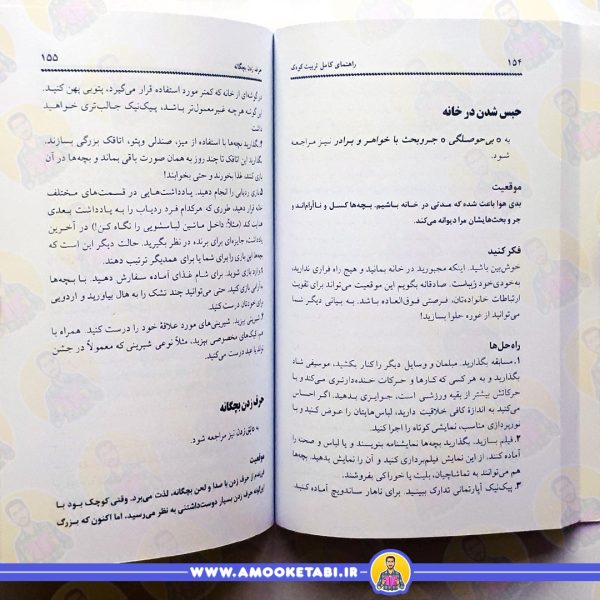 ۱۵۴
راهنمای کامل تربیت کودک
حبس شدن در خانه
به • بی‌حوصلگی • جروبحث با خواهر و برادر نیز مراجعه
شود.
موقعیت
بدی هوا باعث شده که مدتی در خانه باشیم. بچه‌ها کسل و ناآرام‌اند و
جر و بحث‌هایشان مرا دیوانه می‌کند.
فکر کنید
خوش‌بین باشید. اینکه مجبورید در خانه بمانید و هیچ راه فراری ندارید،
به‌خودی‌خود زیباست. صادقانه بگویم این موقعیت می‌تواند برای تقویت
ارتباطات خانواده‌تان، فرصتی فوق‌العاده باشد. به بیانی دیگر شما
می‌توانید از غوره حلوا بسازید!
راه‌حل‌ها
۱. مسابقه بگذارید. مبلمان و وسایل دیگر را کنار بکشید، موسیقی شاد
بگذارید و به هر کسی که کارها و حرکات خنده‌دارتری می‌کند و یا
حرکاتش بیشتر از بقیه ورزشی است، جوایزی بدهید. اگر احساس
می‌کنید به اندازهٔ کافی خلاقیت دارید، لباس‌هایتان را عوض کنید و با
نورپردازی مناسب، نمایشی کوتاه را اجرا کنید.
۲. فیلم بسازید. بگذارید بچه‌ها نمایشنامه بنویسند و یا لباس و صحنه را
آماده کنند. از این نمایش فیلم‌برداری کنید و آن را نمایش بدهید. بچه‌ها
هم می‌توانند به تماشاچیان، بلیت یا خوراکی بفروشند.
۳. پیک‌نیک آپارتمانی تدارک ببینید. برای ناهار ساندویچ آماده کنید.
حرف زدن بچگانه
۱۵۵
در گوشه‌ای از خانه که کمتر مورد استفاده قرار می‌گیرد، پتویی پهن کنید.
گوشه هرچه غیرمعمول‌تر باشد، پیک‌نیک جالب‌تری خواهید
داشت
بگذارید بچه‌ها با استفاده از میز، صندلی و پتو، اتاقک بزرگی بسازند.
بگذارید این اتاقک تا چند روز به همان صورت باقی بماند و بچه‌ها در آن
بازی کنند، غذا بخورند و حتی بخوابند!
بازی ردیابی را انجام دهید. یادداشت‌هایی در قسمت‌های مختلف
قرار دهید، طوری که هرکدام فرد ردیاب را به یادداشت بعدی
هدایت کند (مثلاً: داخل ماشین لباسشویی را نگاه کن!) در آخرین
یادداشت، جایزه‌ای برای برنده در نظر بگیرید. حالت دیگر این است که
بچه‌ها این بازی را برای شما یا برای همدیگر ترتیب دهند.
بازی کنید. حتی می‌توانید چند تشک را به هال بیاورید و اردویی
برای خودتان درست کنید.
شیرینی بپزید. شیرینی‌های مورد علاقهٔ خود را درست کنید. همراه با
هم کیک‌های مخصوصی بپزید، مثلاً نوعی شیرینی که معمولاً در جشن
تولد یا عید درست می‌کنید.
حرف زدن بچگانه
به • نق‌زدن نیز مراجعه شود.
موقعیت
فرزندم از حرف زدن با صدا و لحن بچگانه، لذت می‌برد. وقتی کوچک بود با
این‌گونه حرف زدن بسیار دوست‌داشتنی به نظر می‌رسید، اما اکنون که بزرگ
WWW.AMOOKETABI.IR